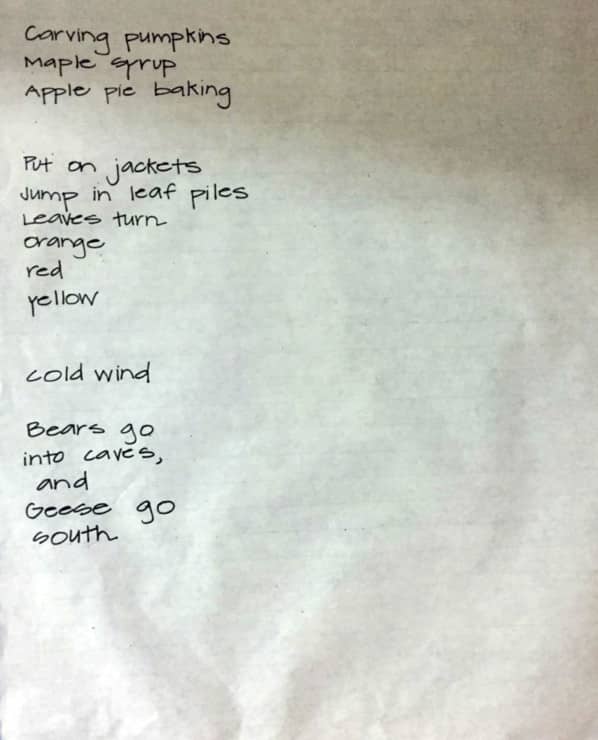 Carving pumpkins
Maple syrup
Apple pie baking
Put on jackets
Jump in leaf piles
Leaves turn
orange
red
yellow
cold wind
Bears go
into caves,
and
Geese go
south